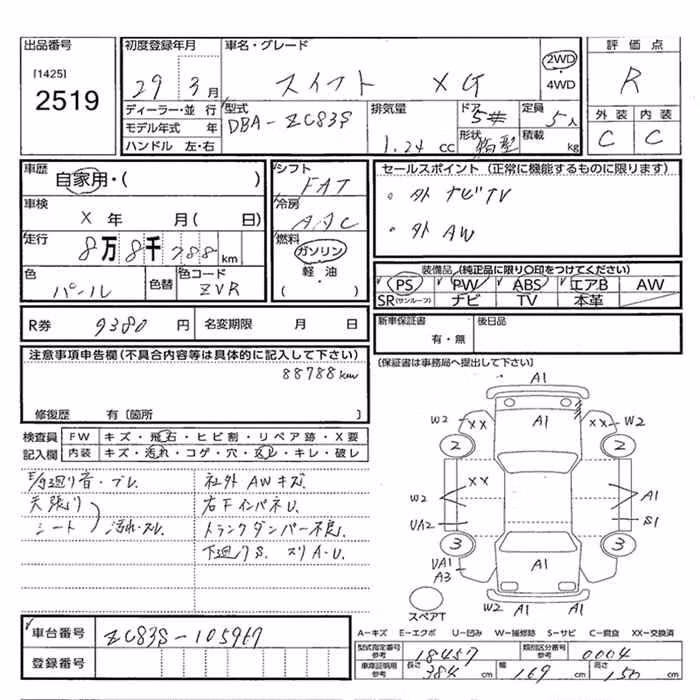 出品番号 初度登録年月 車名・グレード 評価点
[1425] 29 3月 スイフト XG 2WD・4WD R
2519 ディーラー・並行 型式 排気量 ドア 定員 外装 内装
モデル年式 年 DBA-ZC83S 5 5人 C C
ハンドル 左・右 1.24 cc 形状 箱型 積載 kg
車歴 シフト セールスポイント (正常に機能するものに限ります)
自家用・( ) FAT 。外 ナビTV
車検 冷房 。外 AW
X 年 月( 日) AAC
走行 8万8千788km 燃料 ガソリン・軽油・( )
装備品(純正品に限り〇印をつけてください)
色 色替 色コード PS PW ABS エアB AW
パール ZVR SR(サンルーフ) ナビ TV 本革
R券 9380円 名変期限 月 日 新車保証書 有・無 後日品
注意事項申告欄(不具合内容等は具体的に記入して下さい) (保証書は事務局へ提出して下さい)
88788km
修復歴 有[箇所 ]
検査員 FW キズ・飛石・ヒビ割・リペア跡・X要
記入欄 内装 キズ・汚れ・コゲ・穴・スレ・キレ・破レ
廻り音・ブレ、 社外AWキズ、
天張り 右FインパネU、
シート 汚れ・スレ、 トランクダンパー不良、
下廻りS、スリA・U、
A1
W2 XX A1 XX W2
2 2
XX
W2 A1
UA2 S1
3 3
UA1 A1
A3
W2 A1 A1
スペアT
車台番号 ZC83S-105967
登録番号
A-キズ E-エクボ U-凹み W-補修跡 S-サビ C-腐食 XX-交換済
型式指定番号 参考 18457 類別区分番号 参考 0004
車庫証明用 参考 長さ 384 cm 幅 169 cm 高さ 150 cm